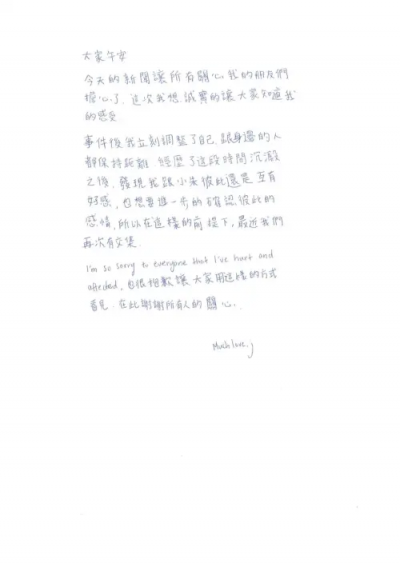 大家午安
今天的新聞讓所有關心我的朋友們
擔心了. 這次我想誠實的讓大家知道我
的感受.
事件後我立刻調整了自己. 跟身邊的人
都保持距離. 經歷了這段時間沉澱
之後. 發現我跟小朱彼此還是互有
好感, 也想要進一步的確認彼此的
感情, 所以在這樣的前提下, 最近我們
再次有交集.
I'm so sorry to everyone that I've hurt and
affected, 也很抱歉讓大家用這樣的方式
看見. 在此謝謝所有人的關心.
Much love. j